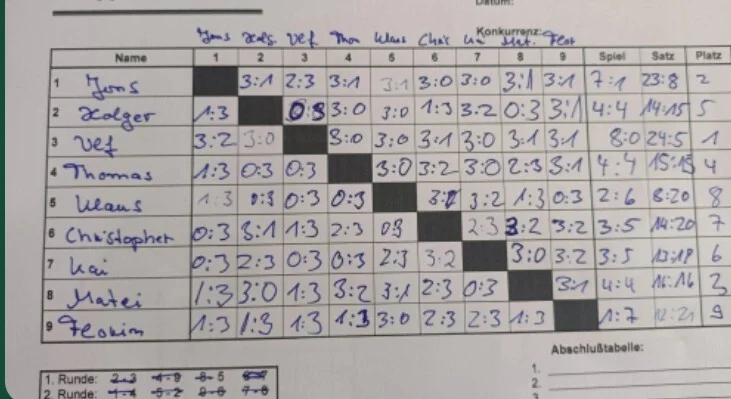 Datum:
Konkurrenz:
Jons Holg. Vef Thom Klaus Chris Kai Mat. Flor
Name 1 2 3 4 5 6 7 8 9 Spiel Satz Platz
1 Jons 3:1 2:3 3:1 3:1 3:0 3:0 3:1 3:1 7:1 23:8 2
2 Holger 1:3 0:3 3:0 3:0 1:3 3:2 0:3 3:1 4:4 14:15 5
3 Vef 3:2 3:0 3:0 3:0 3:1 3:0 3:1 3:1 8:0 24:5 1
4 Thomas 1:3 0:3 0:3 3:0 3:2 3:0 2:3 3:1 4:4 15:15 4
5 Klaus 1:3 0:3 0:3 0:3 3:2 1:3 0:3 2:6 8:20 8
6 Christopher 0:3 3:1 1:3 2:3 0:3 2:3 3:2 3:2 3:5 14:20 7
7 Kai 0:3 2:3 0:3 0:3 2:3 3:2 3:0 3:2 3:5 13:18 6
8 Matei 1:3 3:0 1:3 3:2 3:1 2:3 0:3 3:1 4:4 16:16 3
9 Florim 1:3 1:3 1:3 1:3 3:0 2:3 2:3 1:3 1:7 12:21 9
Abschlußtabelle:
1.
2.
3
1. Runde: 2-3 4-9 8-5
2. Runde: 1-4 5-2 9-6 7-8